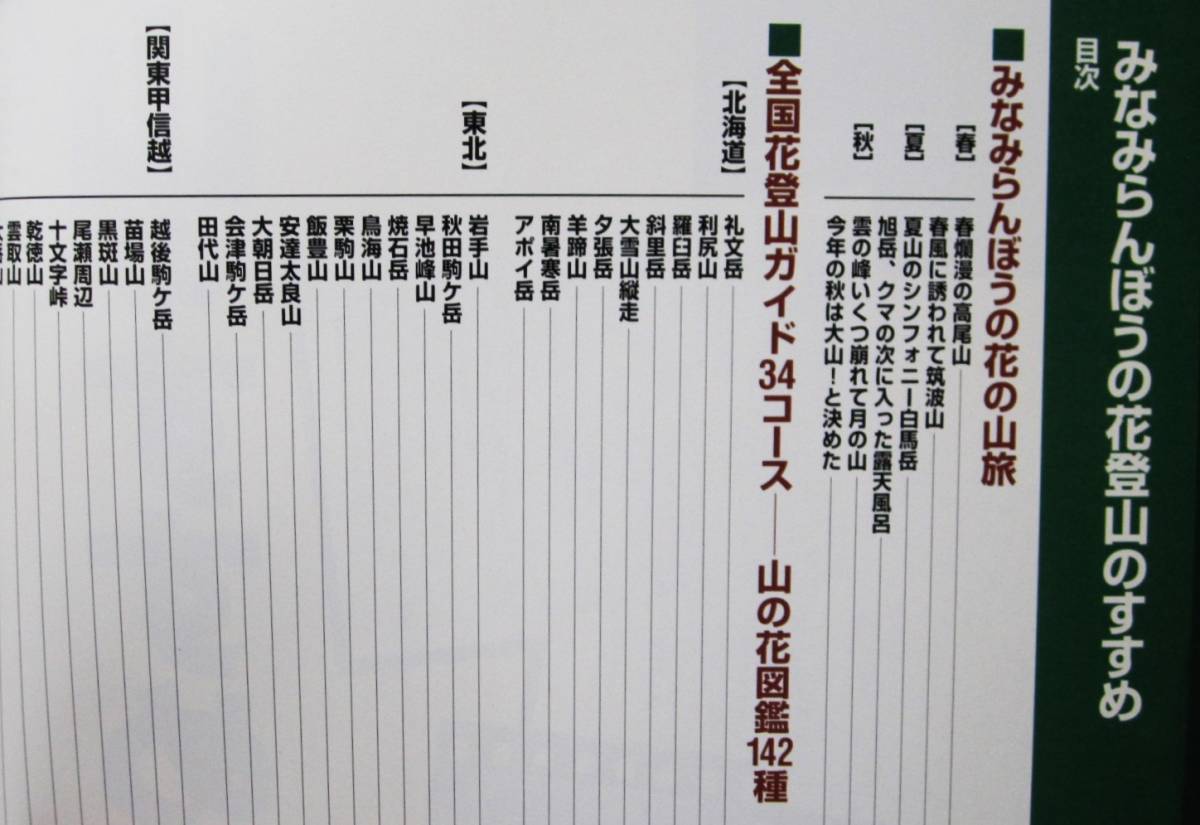 みなみらんぼうの花登山のすすめ
目次
■みなみらんぼうの花の山旅
【春】
春爛漫の高尾山
春風に誘われて筑波山
【夏】
夏山のシンフォニー白馬岳
旭岳、クマの次に入った露天風呂
【秋】
雲の峰いくつ崩れて月の山
今年の秋は大山!と決めた
■全国花登山ガイド34コース——山の花図鑑142種
【北海道】
礼文岳
利尻山
羅臼岳
斜里岳
大雪山縦走
夕張岳
羊蹄山
南暑寒岳
アポイ岳
【東北】
岩手山
秋田駒ケ岳
早池峰山
焼石岳
鳥海山
栗駒山
飯豊山
安達太良山
大朝日岳
会津駒ケ岳
田代山
【関東甲信越】
越後駒ケ岳
苗場山
黒斑山
尾瀬周辺
十文字峠
乾徳山
雲取山